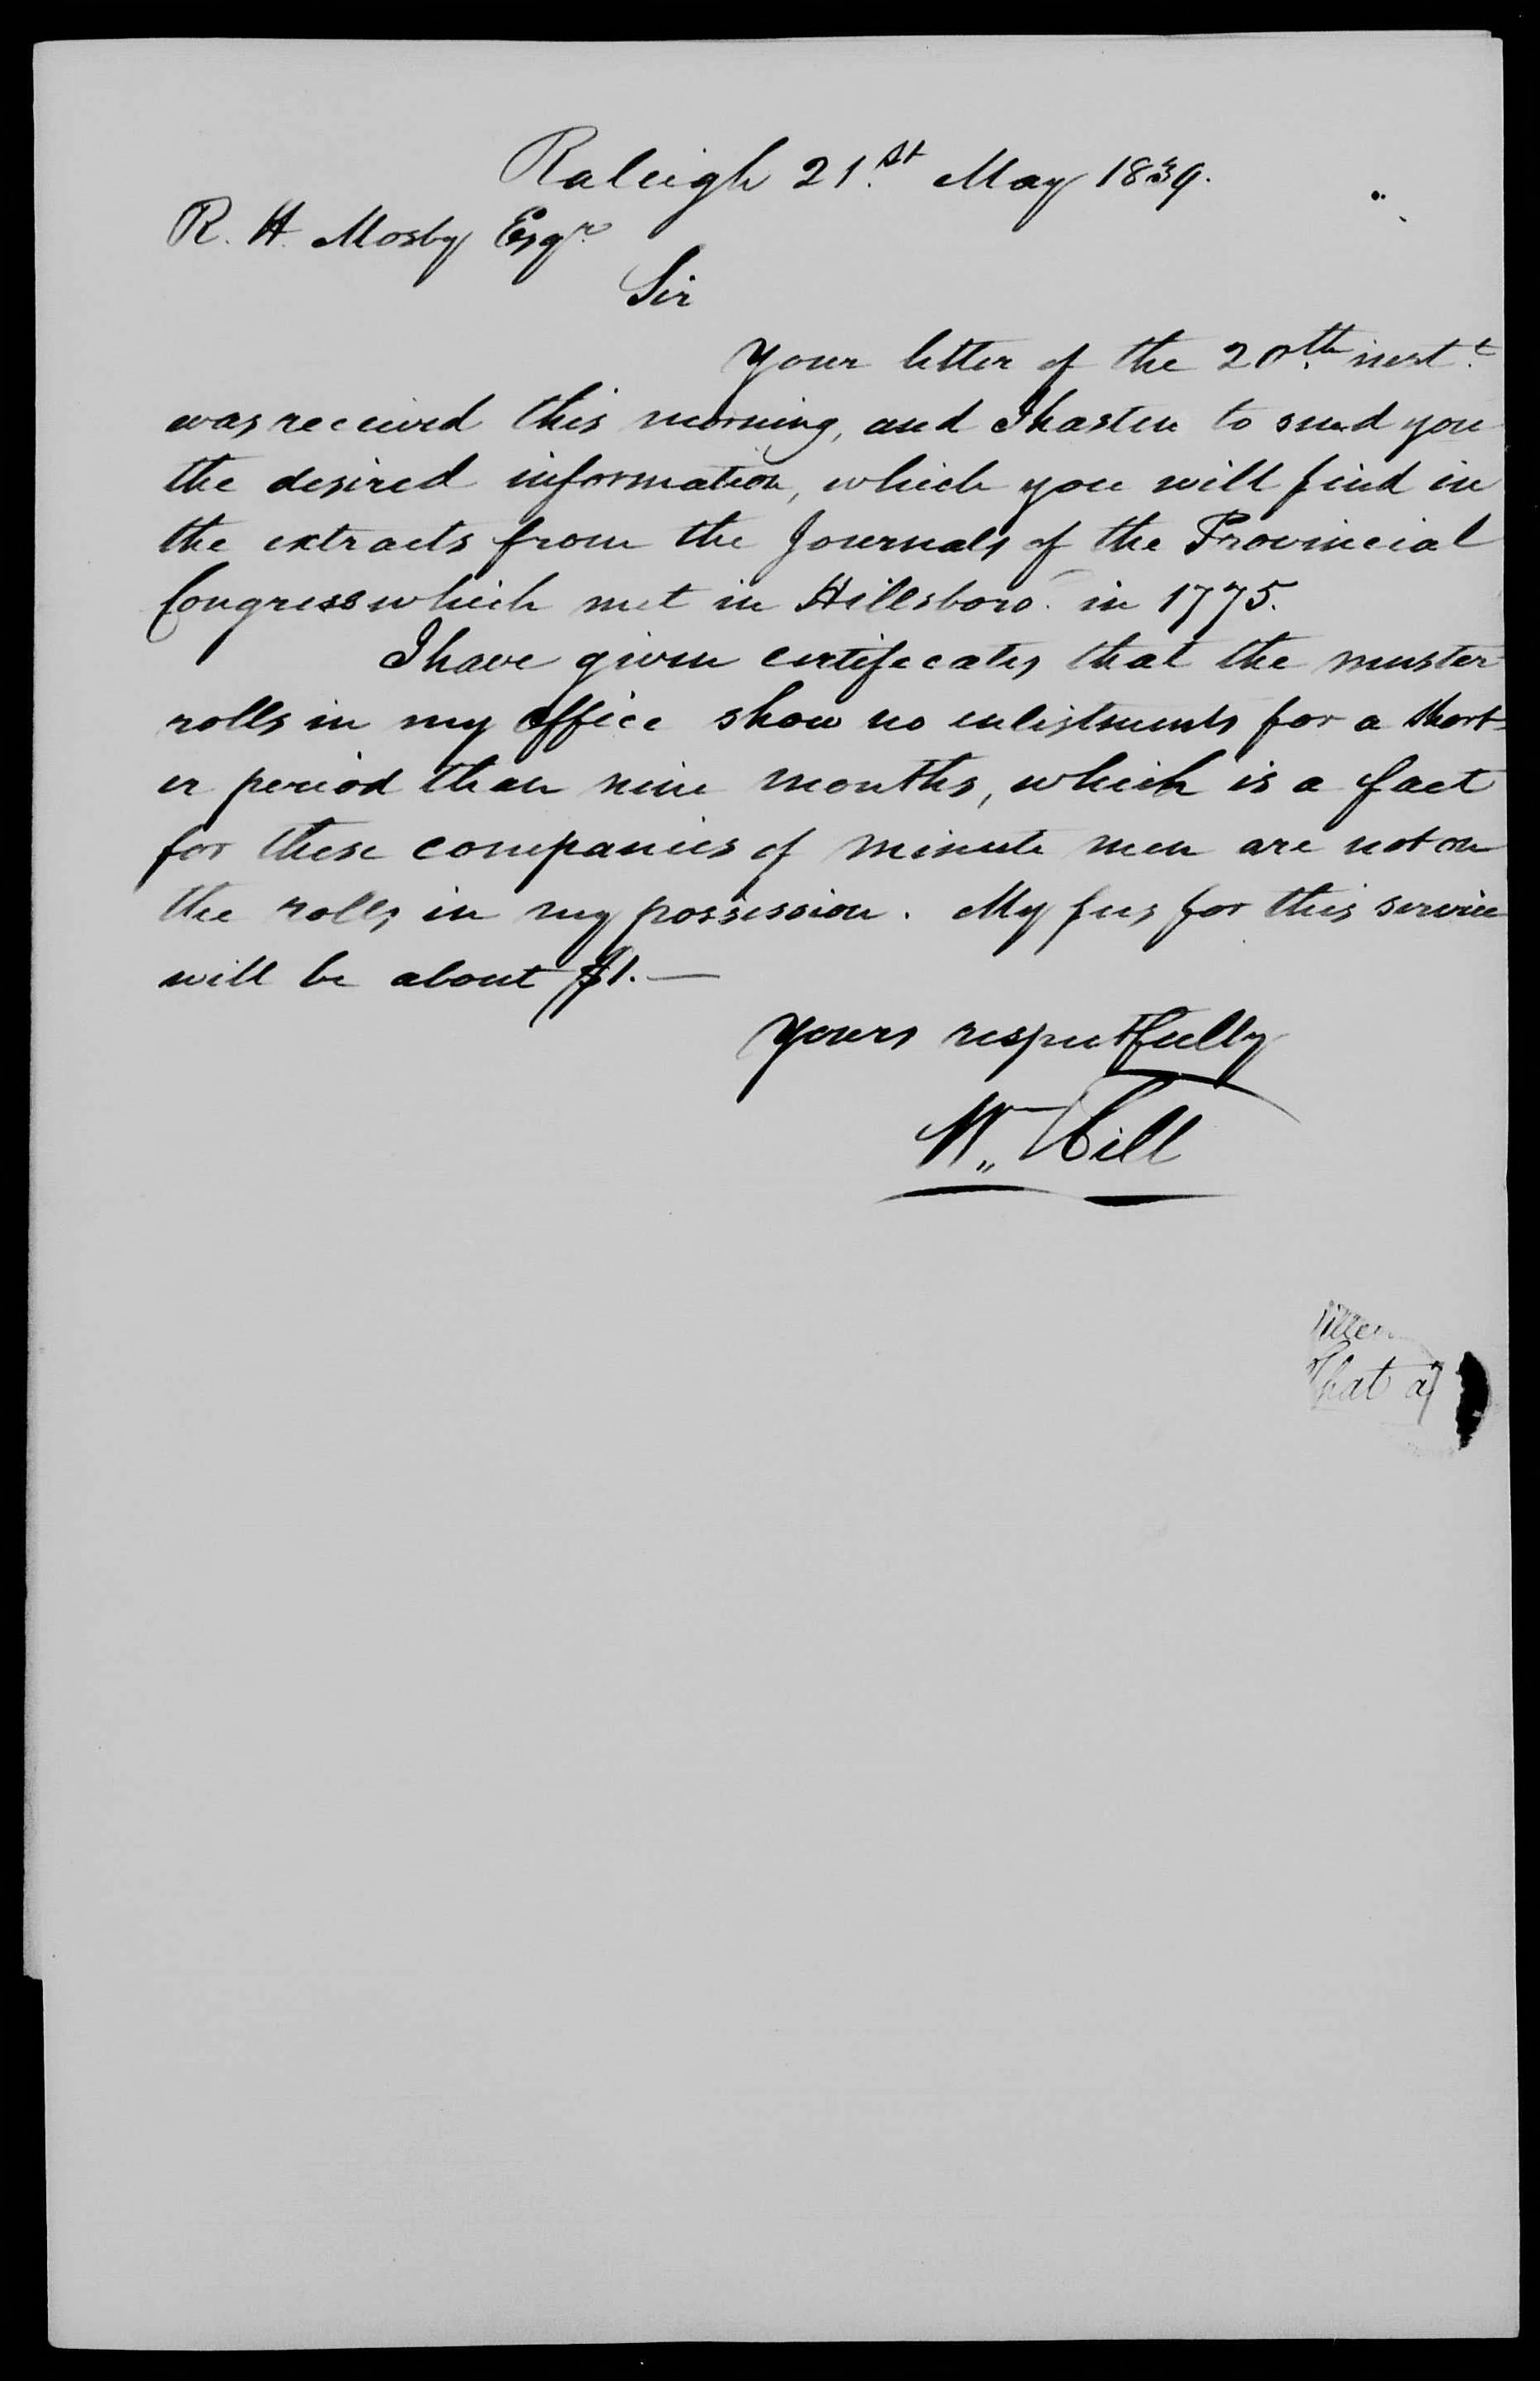 Raleigh 21.st May 1839.
R. H. Mosby Esqr.
Sir
Your letter of the 20th. inst.t
was received this morning, and I hasten to send you
the desired information, which you will find in
the extracts from the Journals of the Provincial
Congress which met in Hillsboro. in 1775.
I have given certificates that the muster
rolls in my office show no enlistments for a short-
er period than nine months, which is a fact
for these companies of minute men are not on
the rolls in my possession. My fees for this service
will be about $1.—
Yours respectfully
Wm Hill
that a